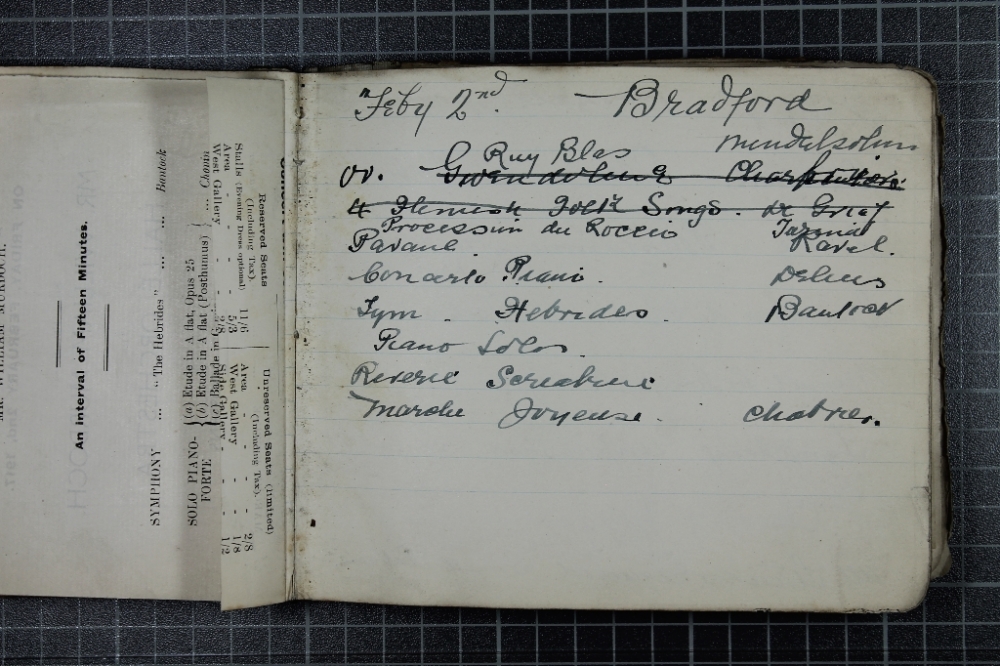 MR. WILLIAM MURDOCH.
An interval of Fifteen Minutes.
SYMPHONY ... "The Hebrides" ... ... Bantock
SOLO PIANO-FORTE
(a) Etude in A flat, Opus 25
(b) Etude in A flat (Posthumus) ... Chopin
(c) Ballade in
Reserved Seats
(Including Tax).
Stalls (Evening Dress optional) 11/6
Area - - - 5/3
West Gallery - -
Unreserved Seats (limited)
(Including Tax).
Area - - - 2/8
West Gallery - - 1/8
Side Gallery - - 1/2
Feby 2nd. Bradford
Ruy Blas Mendelsohn
Ov. Gwendoline Charpentier
4 Flemish Folk Songs. de Grief
Procession du Roccio Turina
Pavane Ravel.
Concerto Piano. Delius
Sym. Hebrides. Bantock
Piano Solos.
Reverie Scriabine
Marche Joyeuse. Chabrier.